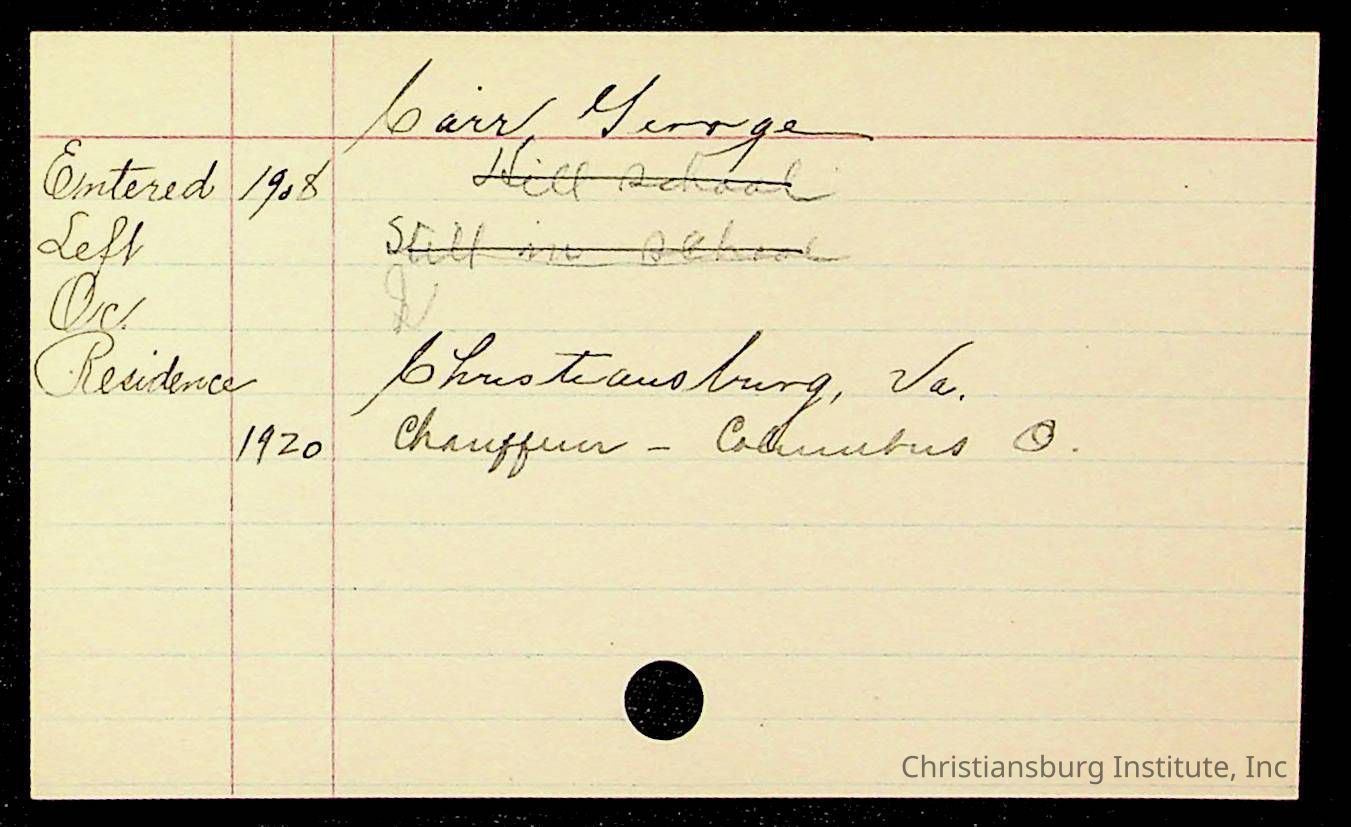 Carr, George
Entered 1908 Hill School
Left Still in school
Oc.
Residence Christiansburg, Va.
1920 Chauffeur - Columbus O.
Christiansburg Institute, Inc